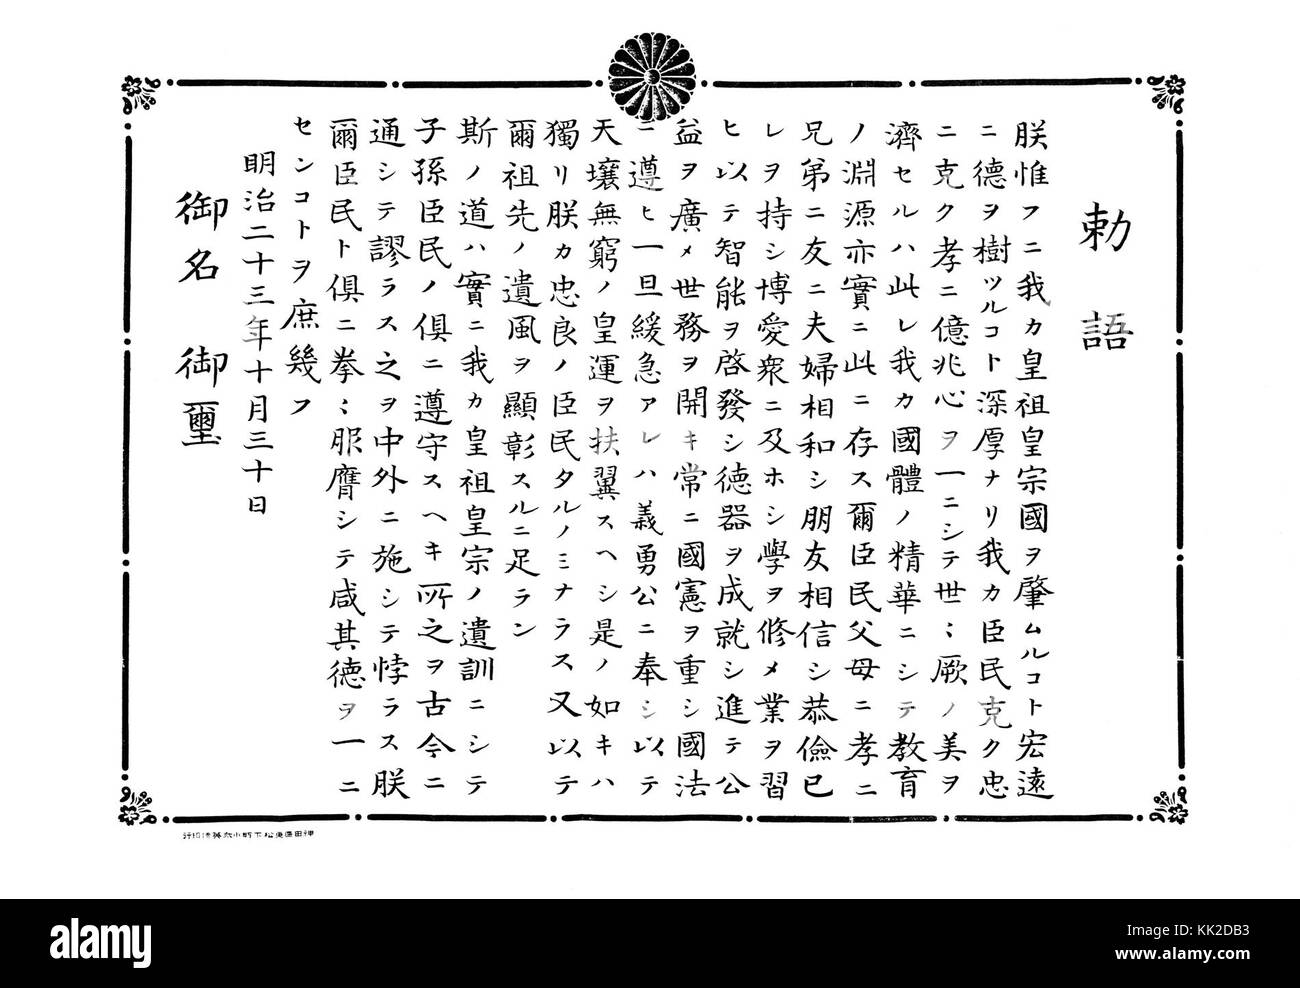 勅語
朕惟フニ我カ皇祖皇宗國ヲ肇ムルコト宏遠
ニ德ヲ樹ツルコト深厚ナリ我カ臣民克ク忠
ニ克ク孝ニ億兆心ヲ一ニシテ世〻厥ノ美ヲ
濟セルハ此レ我カ國體ノ精華ニシテ教育
ノ淵源亦實ニ此ニ存ス爾臣民父母ニ孝ニ
兄弟ニ友ニ夫婦相和シ朋友相信シ恭儉己
レヲ持シ博愛衆ニ及ホシ學ヲ修メ業ヲ習
ヒ以テ智能ヲ啓發シ德器ヲ成就シ進テ公
益ヲ廣メ世務ヲ開キ常ニ國憲ヲ重シ國法
ニ遵ヒ一旦緩急アレハ義勇公ニ奉シ以テ
天壤無窮ノ皇運ヲ扶翼スヘシ是ノ如キハ
獨リ朕カ忠良ノ臣民タルノミナラス又以テ
爾祖先ノ遺風ヲ顯彰スルニ足ラン
斯ノ道ハ實ニ我カ皇祖皇宗ノ遺訓ニシテ
子孫臣民ノ俱ニ遵守スヘキ所之ヲ古今ニ
通シテ謬ラス之ヲ中外ニ施シテ悖ラス朕
爾臣民ト俱ニ拳〻服膺シテ咸其德ヲ一ニ
センコトヲ庶幾フ
明治二十三年十月三十日
御名 御璽
a alamy stock photo
alamy
Image ID: KK2DB3
www.alamy.com